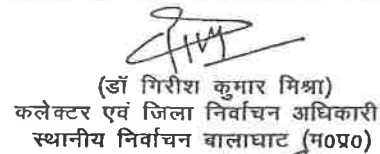 (डॉ गिरीश कुमार मिश्रा)
कलेक्टर एवं जिला निर्वाचन अधिकारी
स्थानीय निर्वाचन बालाघाट (म०प्र०)